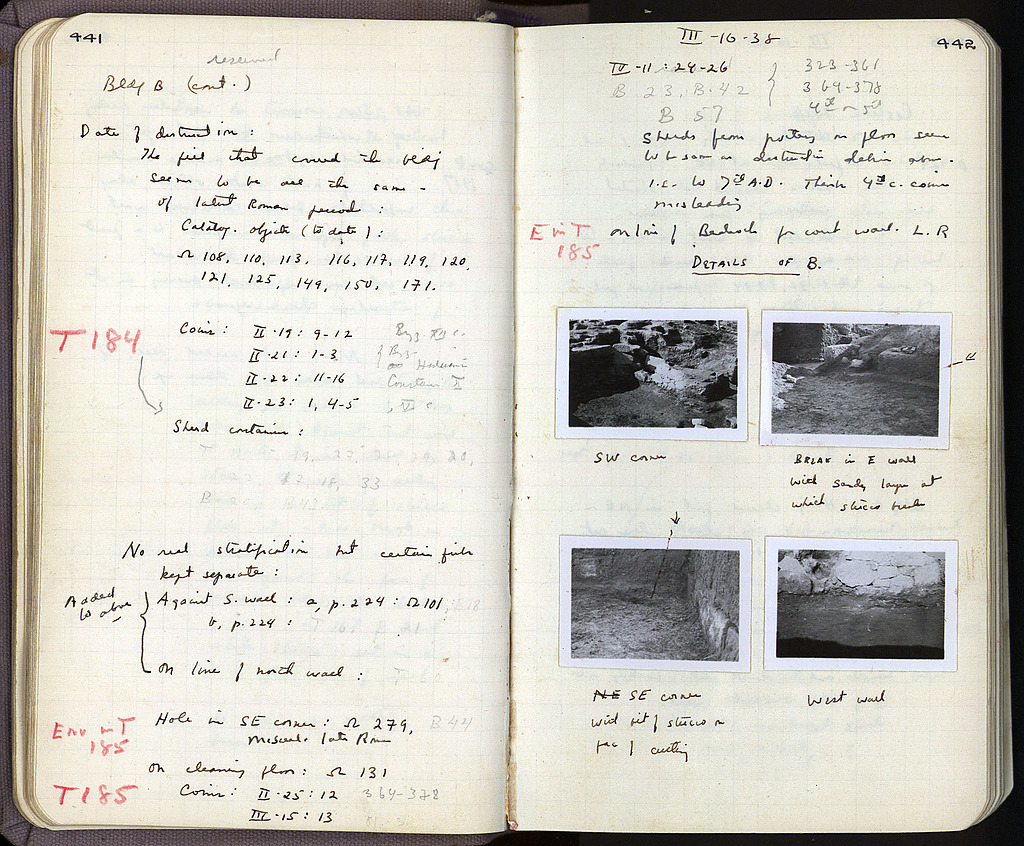 441
reserved
Bldg B (cont.)
Date of destruction :
The fill that covered the bldg
seems to be all the same -
of latest Roman period :
Catalog. objects (to date) :
Ω 108, 110, 113, 116, 117, 119, 120,
121, 125, 149, 150, 171.
T 184
Coins : II·19 : 9-12 Byz. XII c.
II·21 : 1-3 Byz
II·22 : 11-16
II·23 : 1, 4-5
Sherd container :
19, 23,
18, 33
No real stratification but certain fills
kept separate :
Added
to above
Against S. wall : a, p. 224 : Ω 101,
b, p. 224 :
on line of north wall :
Env in T
185
Hole in SE corner : Ω 279, B 44
Miscel. late Rom
On cleaning floor : Ω 131
T 185
Coins : II·25 : 12 364-378
III·15 : 13
III-16-38
442
IV-11 : 24-26 323-361
B 23, B·42 364-378
B 57 4th - 5th
Sherds from pottery on floor seem
to be same as destruction debris above.
I.e. to 7th A.D. Think 4th c. coins
misleading
E in T
185
on line of Bedrock for court wall. L.R
DETAILS OF B.
SW corner
BREAK in E wall
with sandy layer at
which stucco breaks
NE SE corner
with bit of stucco on
face of cutting
West wall